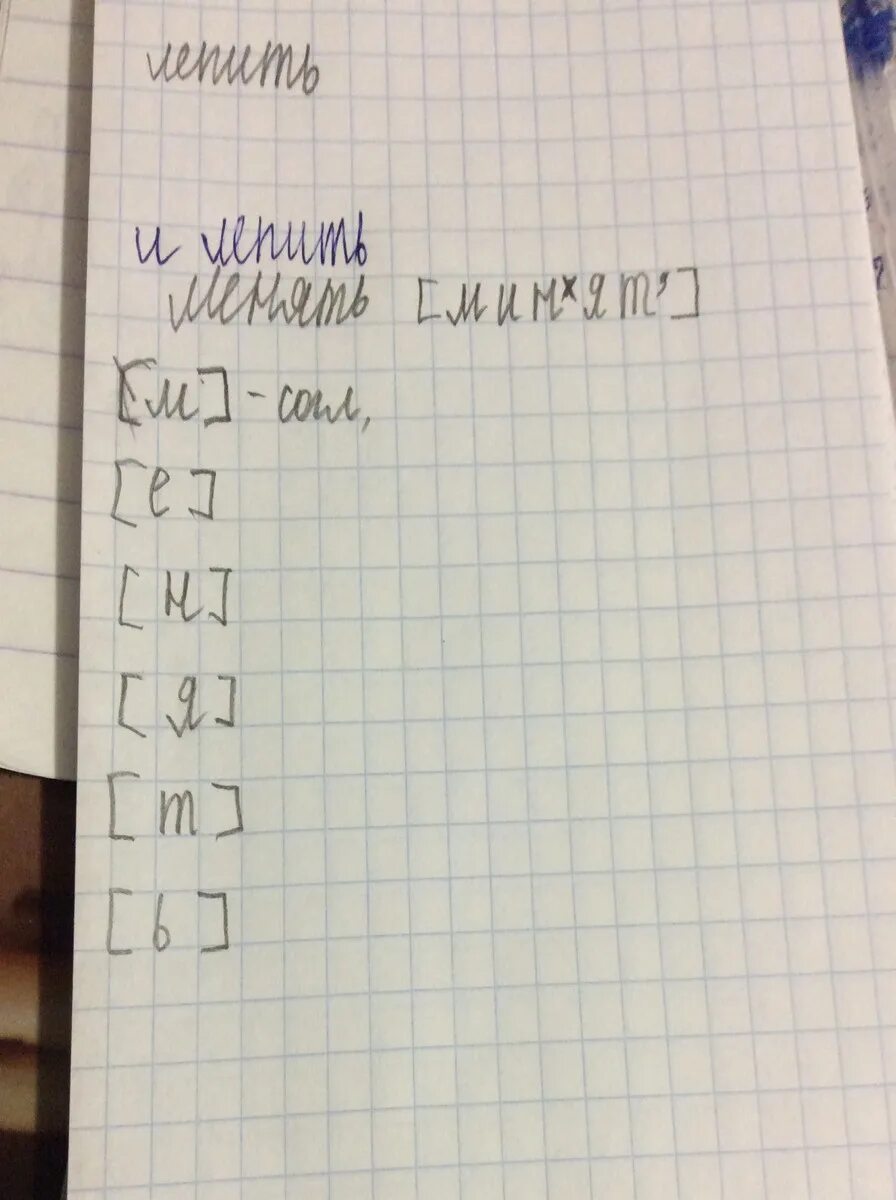 лепить
и лепить
менять [минˣятʼ]
[м] - согл,
[е]
[н]
[я]
[т]
[ь]